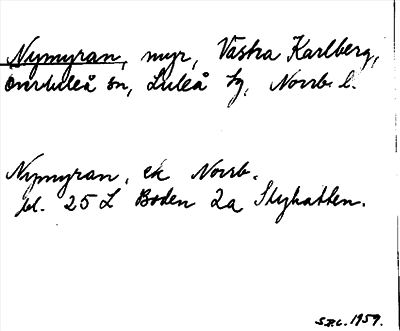 Nymyran, myr, Västra Karlberg,
Överluleå sn, Luleå tg, Norrb. l.
Nymyran, ek Norrb.
bl. 25 L Boden 2a Slyhatten.
S.P.L. 1959.